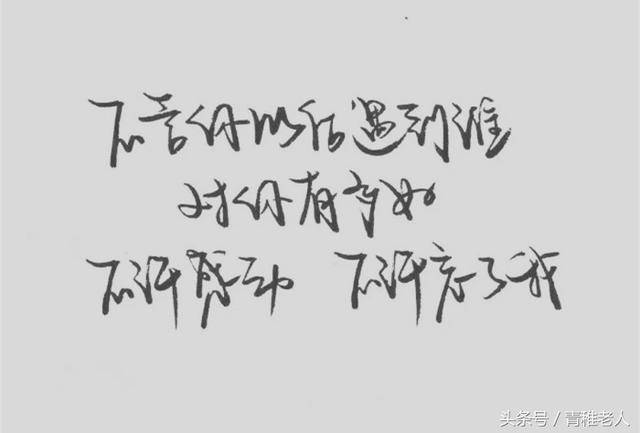 不管你以后遇到谁
对你有多好
不许感动 不许忘了我
头条号／青稚老人